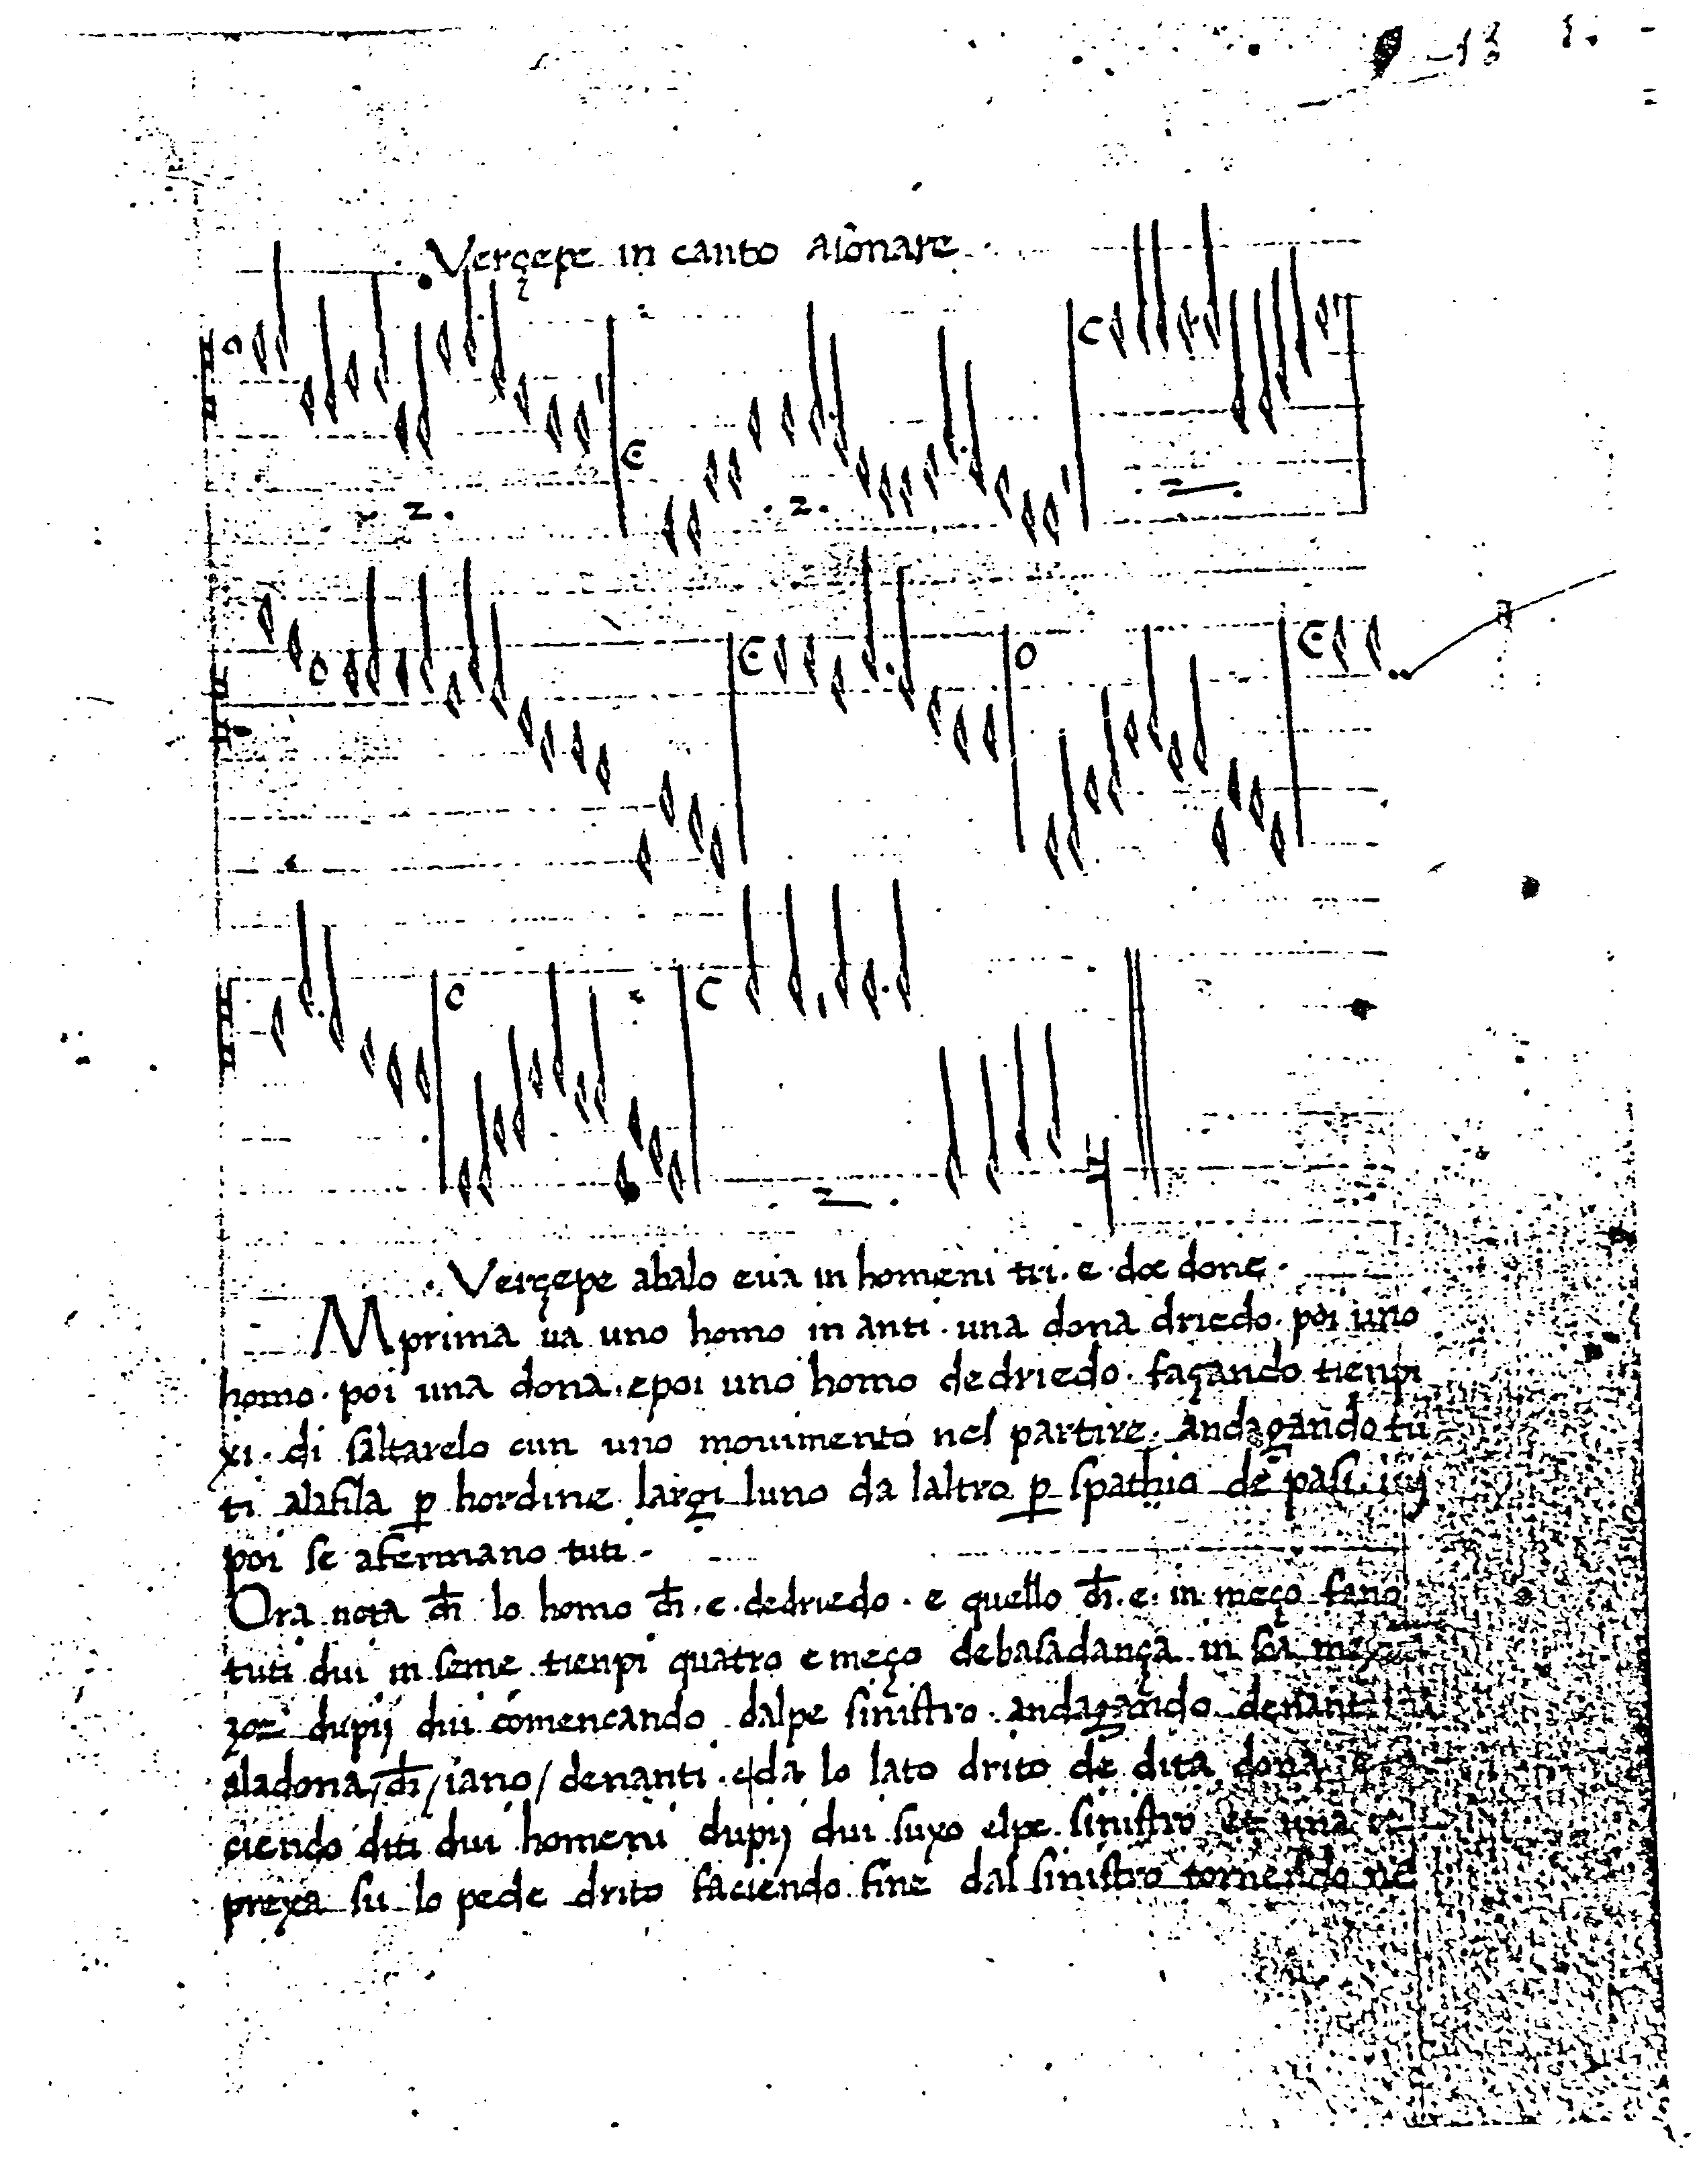 13 1.
Verçepe in canto aiõnare
.2.
.2.
Verçepe abalo e va in homeni tri. e. doe done.
Mprima va uno homo in anti. una dona driedo. poi uno
homo. poi una dona. e poi uno homo dedriedo. façando tienpi
xi. di saltarelo cun uno movimento nel partire. andagando tu
ti alafila p hordine largi luno da laltro p spathio de pasi. iiij
poi se afermano tuti.
Ora nota ch̄ lo homo ch̄. e. dedriedo. e quello ch̄. e. in meço fano
tuti dui in seme tienpi quatro e meço debasadança in soa
dupij dui comencando dalpe sinistro. andagando denanti
aladona/ch̄/iano/denanti. e da lo lato drito de dita dona
ciendo diti dui homeni dupij dui suxo elpe. sinistro et una
prexa su lo pede drito faciendo fine dal sinistro tornendo ne